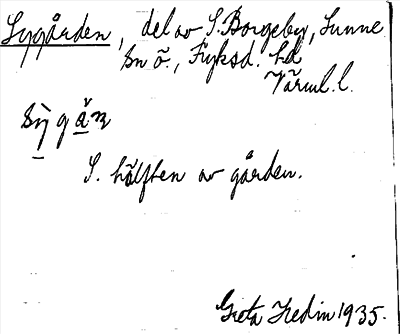 Sygården, del av S. Borgeby, Sunne
sn ö., Fryksd. hd
Värml. l.
sỳgä̀n
S. hälften av gården.
Greta Hedin 1935.